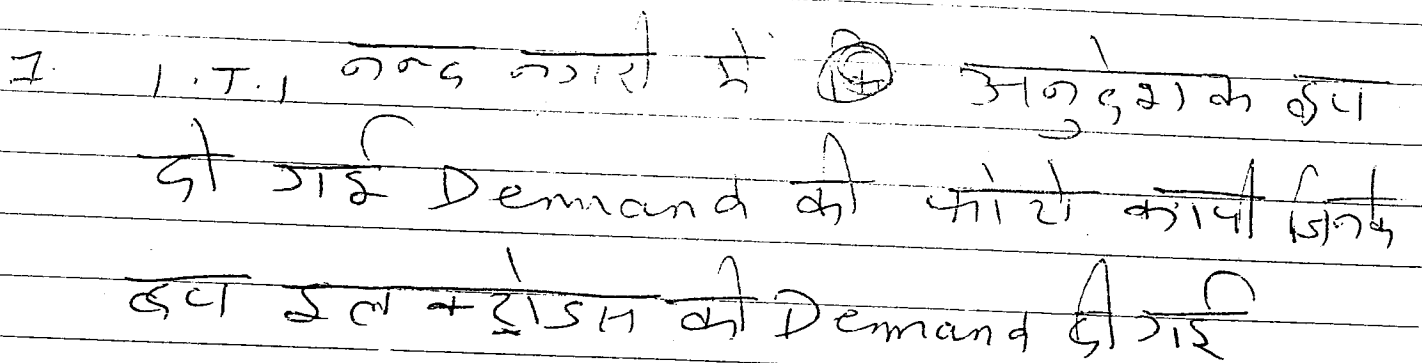 1. I.T.I नन्द नगरी में अनुदेशक द्वारा
दी गई Demand की फोटो कापी जिनके
द्वारा इलेक्ट्रोडस की Demand दी गई